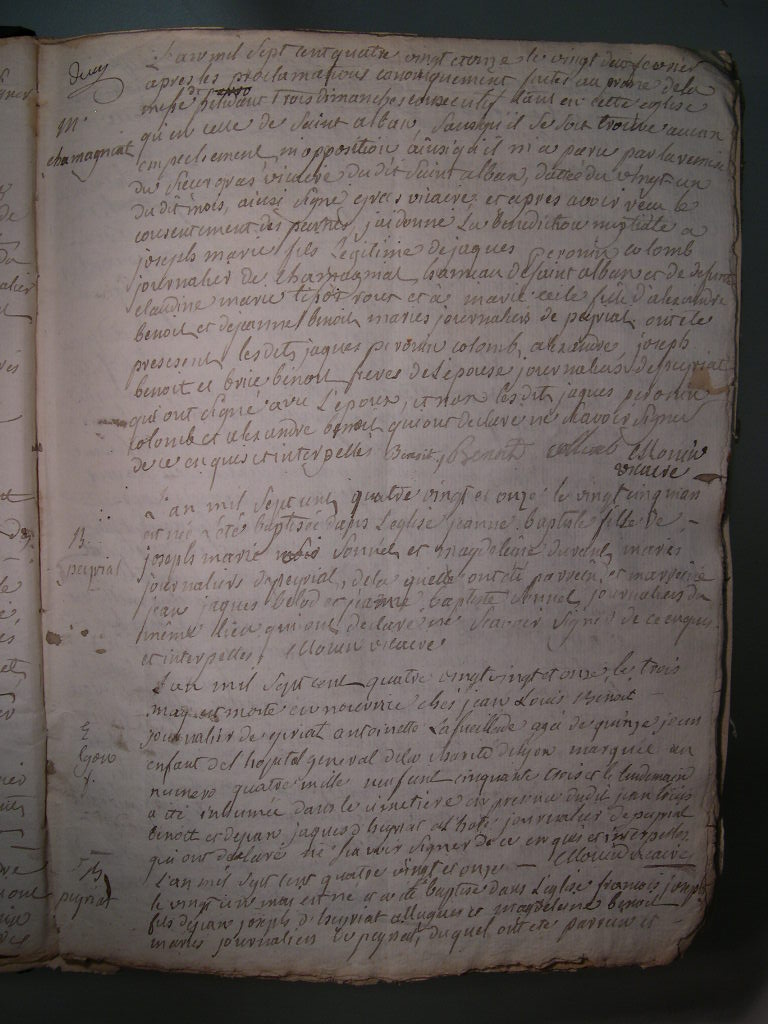 L'an mil sept cent quatre vingt et onze le vingt deux fevrier
après les proclamations canoniquement faites au prone de la
messe pendant trois dimanches consecutif tant en cette eglise
M.
qu'en celle de saint alban, sans qu'il se soit trouvé aucun
chamagniat
empechement ni opposition ainsi qu'il m'a paru par la remise
du sieur gras vicaire dudit saint alban, datée du vingt un
du dit mois, ainsi signé gras vicaire, et apres avoir recu le
consentement des parties, j'ai donné la benediction nuptiale a
joseph marie fils legitime de jaques peronin colomb
journalier de chamagniat, hameau de saint alban et de defunte
claudine marie et à marie cecile fille d'alexandre
benoit et de jeanne benoit, mariés journaliers de peyriat, ont été
presesent les dits jaques peronin colomb, alexandre, joseph
benoit et brice benoit freres de l'epouse journaliers de peyriat
qui ont signé avec l'epoux, et non les dit jaques peronin
colomb et alexandre benoit qui ont declaré ne scavoir signer
de ce enquis et interpellés Benoit, Benoit collomb Morin
vicaire
L'an mil sept cent quatre vingt et onze le vingt cinq mars
est née et a été baptisée dans l'eglise jeanne baptiste fille de
B.
joseph marie sonnel et magdeleine mariés
peyriat
journaliers de peyriat, de la quelle ont été parrein et marreine
jean jaques belod et jeanne baptiste sonnel, journaliers du
même lieu qui ont declaré ne scavoir signer de ce enquis
et interpellés, Morin vicaire
L'an mil sept cent quatre vingt et onze, le trois
may est morte en nourrice chés jean Louis Benoit
E
journalier de peyriat antoinette Lafeuillade agée de quinze jours
Lyon
enfant de l'hopital general de la charité de lyon marquée au
numero quatre mille neuf cent cinquante trois et le lendemain
a été inhumée dans le cimetiere en presence dudit jean Louis
benoit et de jean jaques d'heyriat journalier de peyriat
qui ont declaré ne scavoir signer de ce enquis et interpellés
Morin vicaire
L'an mil sept cent quatre vingt et onze
B
le vingt un mai est né et a été baptisé dans l'eglise francois joseph
peyriat
fils de jean joseph d'heyriat et magdeleine benoit
mariés journaliers de peyriat, duquel ont été parrein et